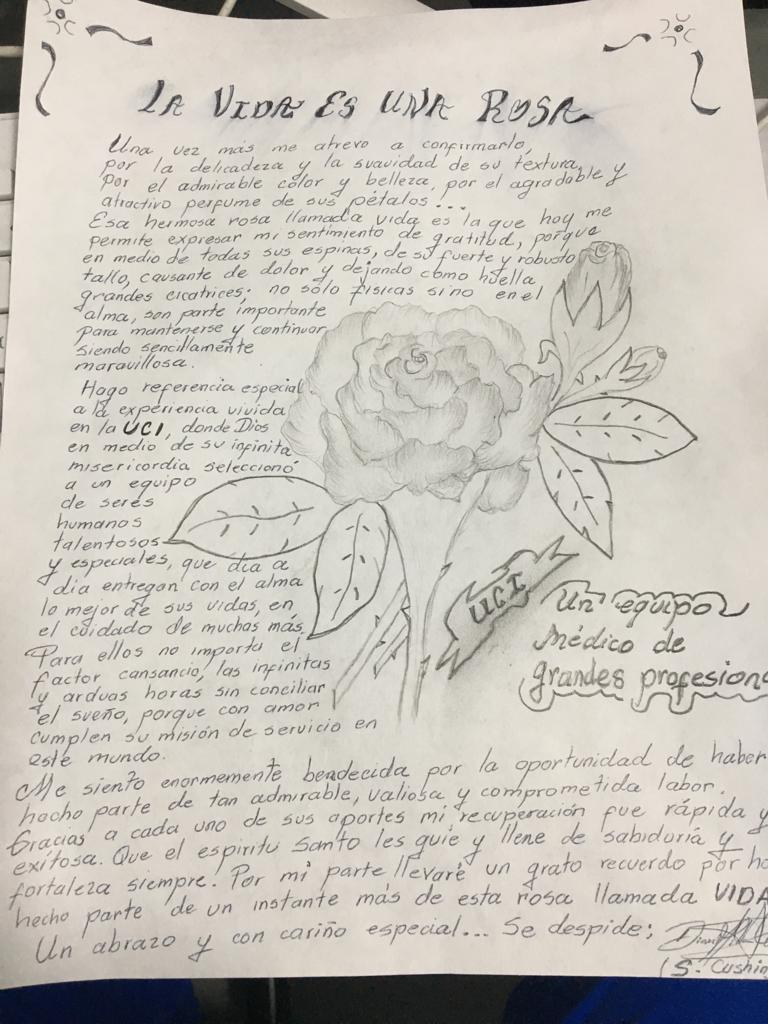 LA VIDA ES UNA ROSA
Una vez más me atrevo a confirmarlo,
por la delicadeza y la suavidad de su textura,
Por el admirable color y belleza, por el agradable y
atractivo perfume de sus pétalos...
Esa hermosa rosa llamada vida es la que hoy me
permite expresar mi sentimiento de gratitud, porque
en medio de todas sus espinas, de su fuerte y robusto
tallo, causante de dolor y dejando como huella
grandes cicatrices; no sólo físicas sino en el
alma, son parte importante
para mantenerse y continuar
siendo sencillamente
maravillosa.
Hago referencia especial
a la experiencia vivida
en la UCI, donde Dios
en medio de su infinita
misericordia seleccionó
a un equipo
de seres
humanos
talentosos
y especiales, que día a
día entregan con el alma
lo mejor de sus vidas, en
el cuidado de muchas más.
Para ellos no importa el
factor cansancio, las infinitas
y arduas horas sin conciliar
el sueño, porque con amor
cumplen su misión de servicio en
este mundo.
UCI
Un equipo
Médico de
grandes profesion
Me siento enormemente bendecida por la oportunidad de haber
hecho parte de tan admirable, valiosa y comprometida labor.
Gracias a cada uno de sus aportes mi recuperación fue rápida y
exitosa. Que el espíritu Santo les guíe y llene de sabiduría y
fortaleza siempre. Por mi parte llevaré un grato recuerdo por ha
hecho parte de un instante más de esta rosa llamada VIDA
Un abrazo y con cariño especial... Se despide:
(S. Cushin